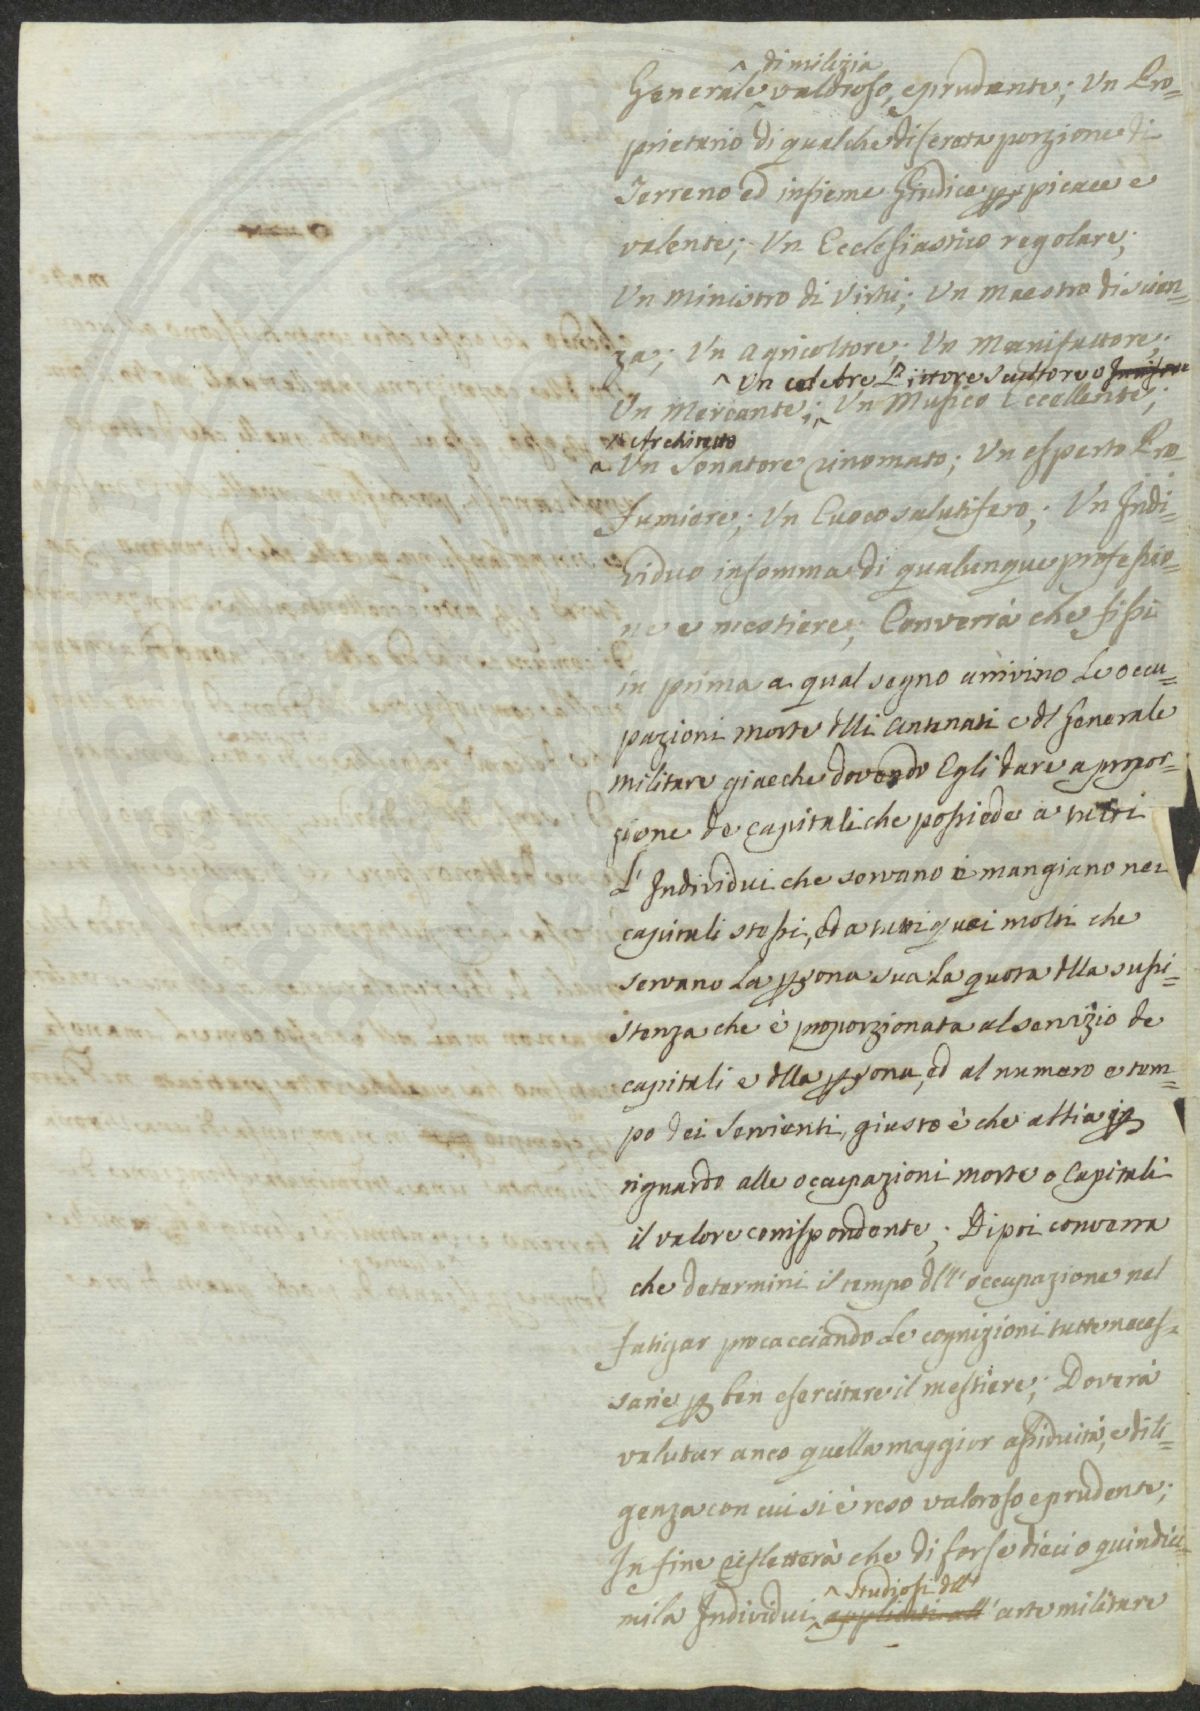 di milizia
Generale valoroso, e prudente; Un Pro=
prietario di qualche discreta porzione di
Terreno ed insieme Giudice pspicace e
valente; Un Ecclesiastico regolare;
Un Ministro di Virtù; Un Maestro di scien=
za; Un Agricoltore; Un Manifattore;
Un celebre Pittore Scultore o
Un Mercante; Un Musico Eccellente;
Architetto
Un Sonatore rinomato; Un esperto Pro
fumiere; Un Cuoco salutifero; Un Indi=
viduo insomma di qualunque professio=
ne e mestiere; Converrà che fissi
in prima a qual segno arrivino le occu=
pazioni morte dlli Antenati e dl Generale
militare giacche dovendo Egli dare a propor=
zione de capitali che possiede a tutti
l'Individui che servano e mangiano nei
capitali stessi, ed a tutti quei molti che
servano la psona sua la quota dlla sussi=
stenza che è proporzionata al servizio de
capitali e dlla psona, ed al numero e tem=
po dei Servienti, giusto è che attia p
riguardo alle occupazioni morte o Capitali
il valore corrispondente; Dipoi converra
che determini il tempo dll'occupazione nel
fatigar procacciando le cognizioni tutte neces=
sarie p ben esercitare il mestiere; Doverà
valutar anco quella maggior assiduità, e dili=
genza con cui si è reso valoroso e prudente;
In fine rifletterà che di forse dieci o quindici=
studiosi dll'
mila Individui applicati all' arte militare